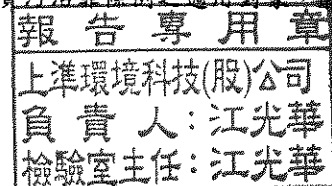 報告專用章
上準環境科技(股)公司
負責人:江光華
檢驗室主任:江光華